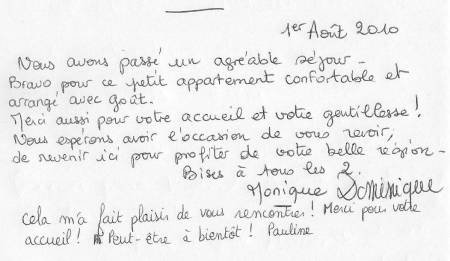 1er Août 2010
Nous avons passé un agréable séjour -
Bravo pour ce petit appartement confortable et
arrangé avec goût.
Merci aussi pour votre accueil et votre gentillesse !
Nous espérons avoir l'occasion de vous revoir,
de revenir ici pour profiter de votre belle région -
Bises à tous les 2.
Monique Dominique
Cela m'a fait plaisir de vous rencontrer ! Merci pour votre
accueil ! Peut-être à bientôt ! Pauline